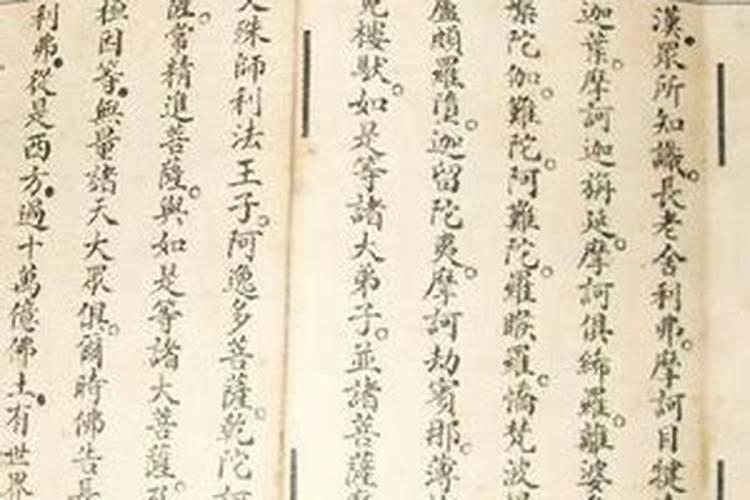 漢衆所知識。長老舍利弗。摩訶目犍
迦葉。摩訶迦旃延。摩訶俱絺羅。離婆
槃陀伽。難陀。阿難陀。羅睺羅。憍梵波
盧頗羅墮。迦留陀夷。摩訶劫賓那。薄
樓馱。如是等諸大弟子。並諸菩薩
殊師利法王子。阿逸多菩薩。乾陀訶
薩。常精進菩薩。與如是等諸大菩薩。
桓因等。無量諸天大衆俱。爾時佛告長
利弗。從是西方。過十萬億佛土。有世界